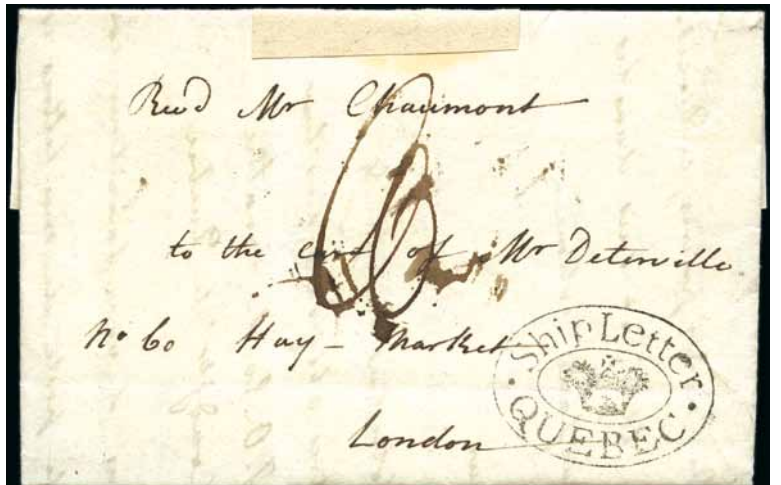 Revd Mr Chaumont
to the care of Mr Deterville
No 60 Hay - Market
London
Ship Letter
QUEBEC